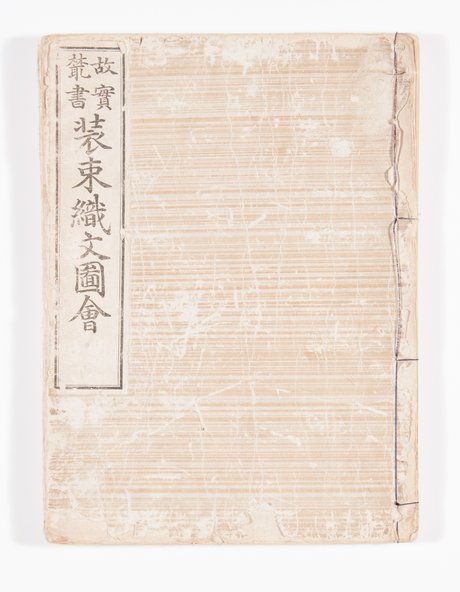 故實
叢書
装束織文圖會